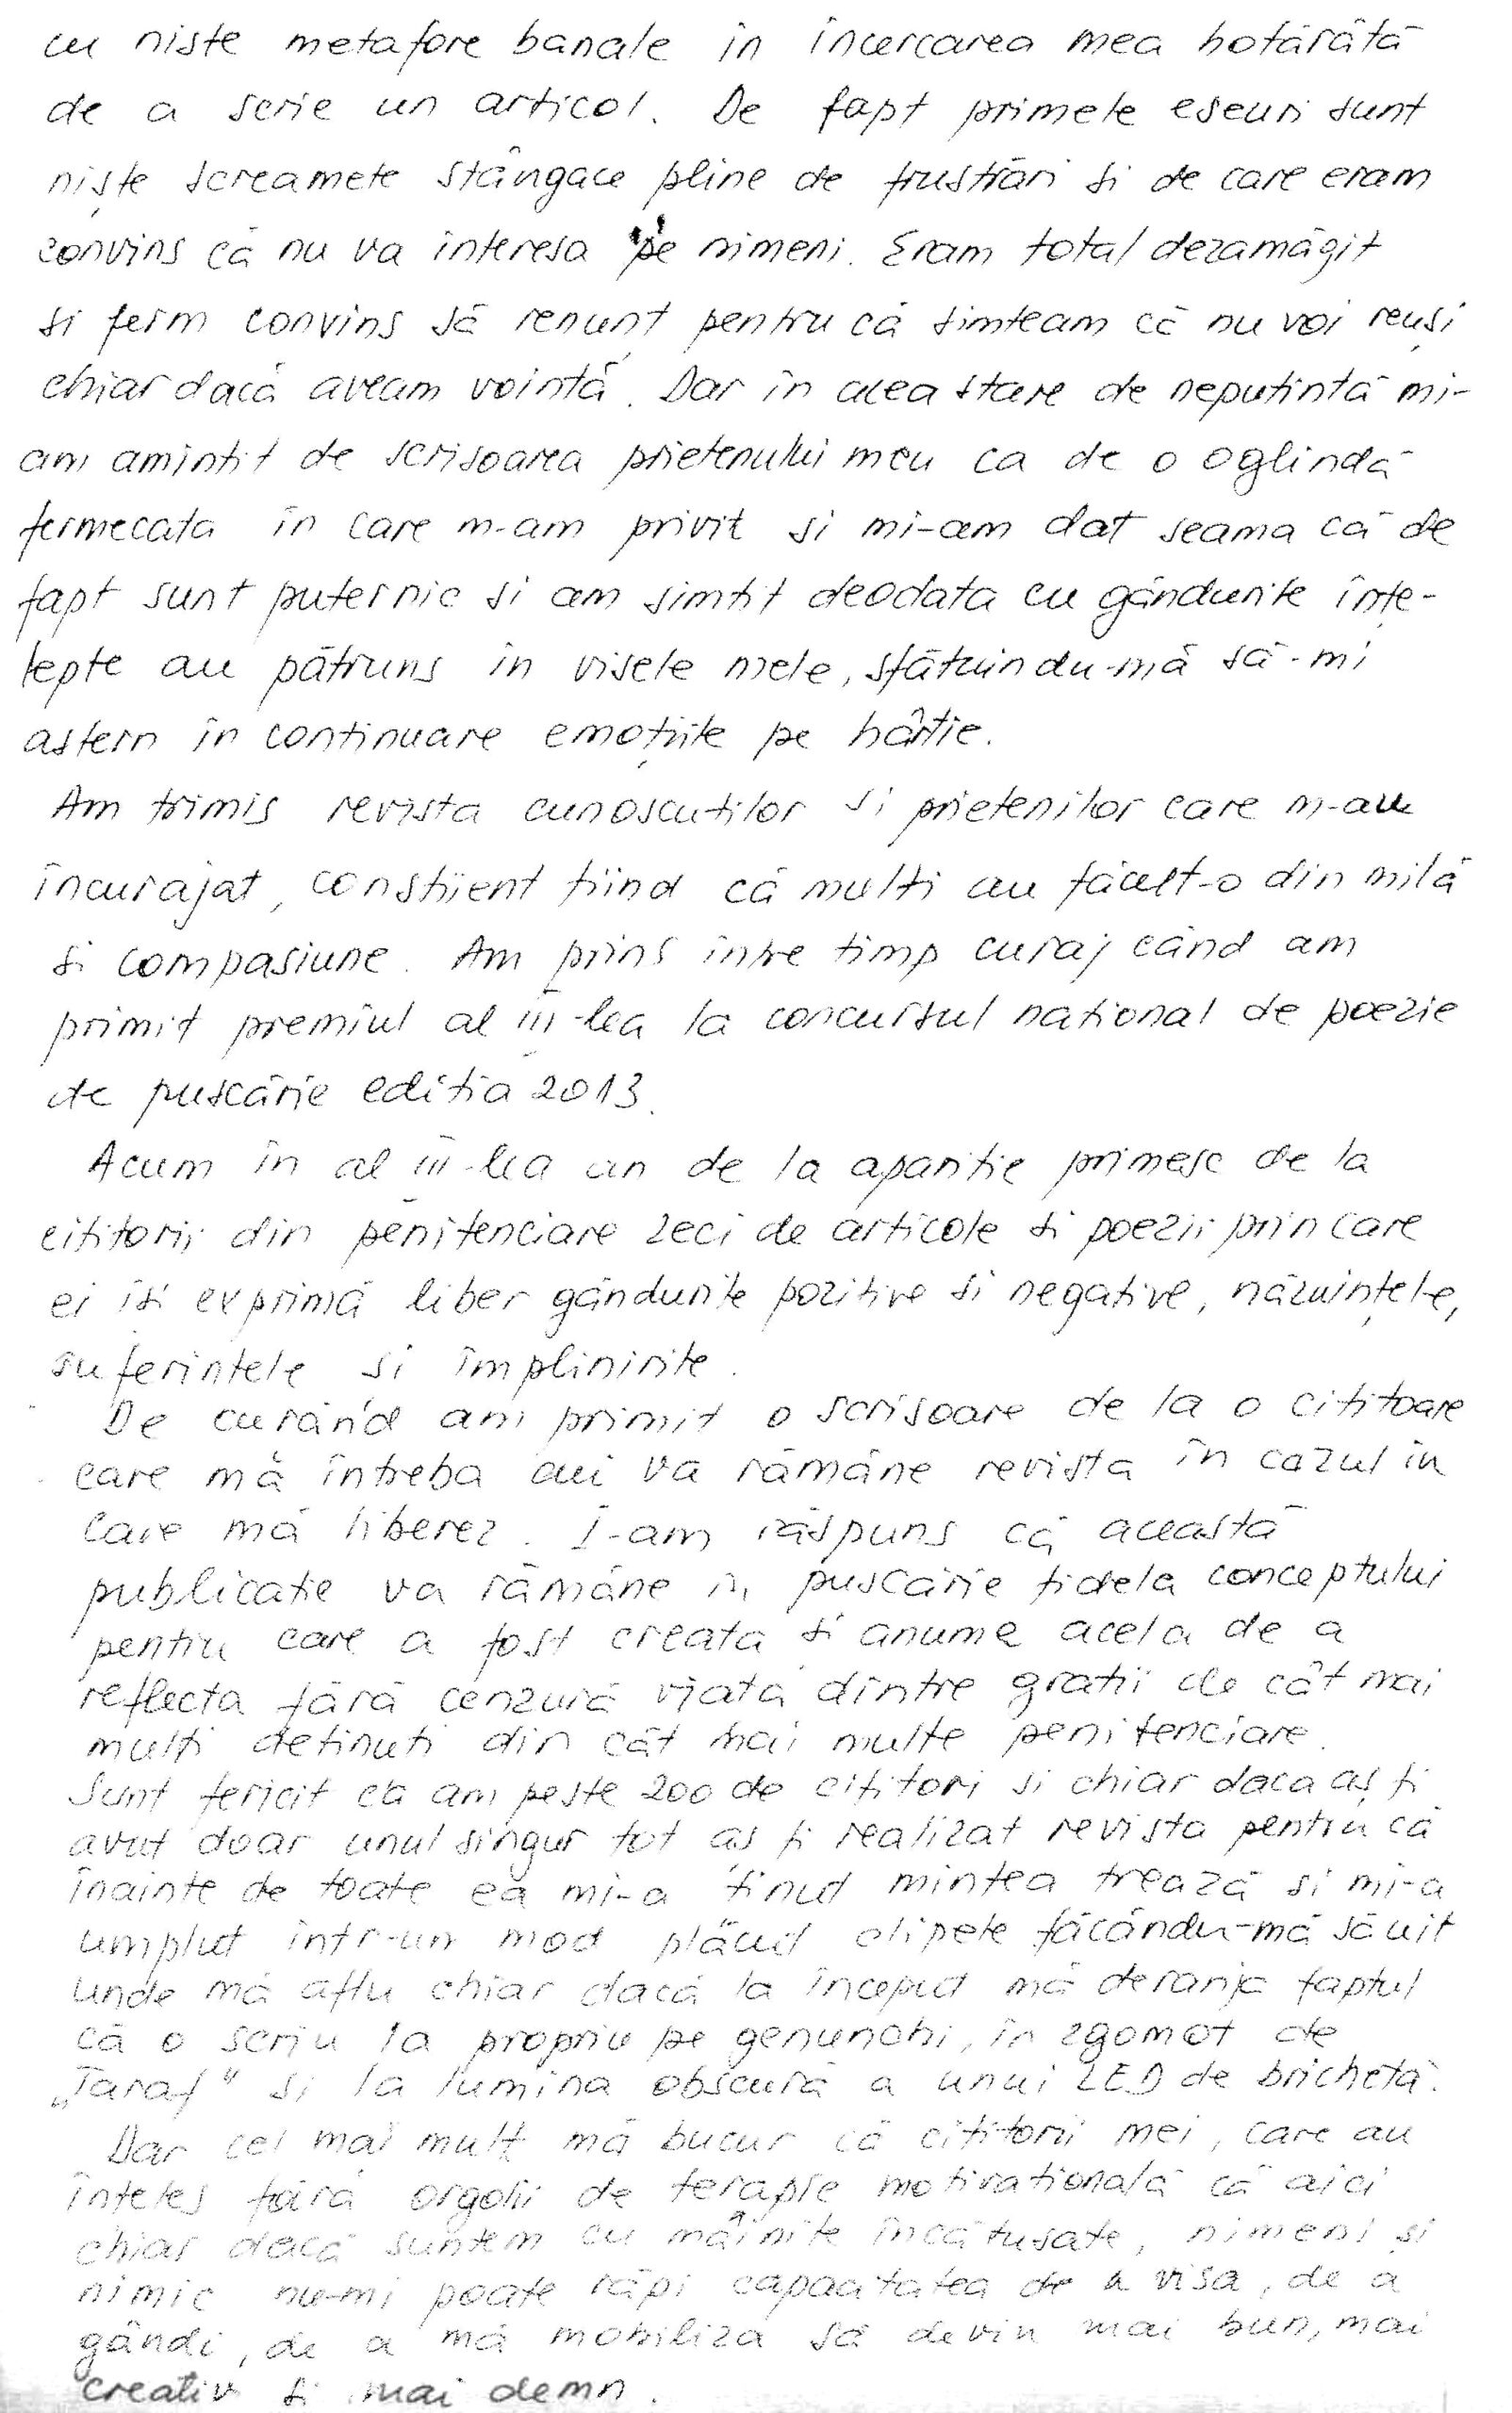 cu niste metafore banale în încercarea mea hotărâtă
de a scrie un articol. De fapt primele eseuri sunt
niște screamete stângace pline de frustrări si de care eram
convins că nu va interesa pe nimeni. Eram total dezamăgit
si ferm convins să renunț pentru că simteam că nu voi reuși
chiar dacă aveam vointă. Dar în acea stare de neputintă mi-
am amintit de scrisoarea prietenului meu ca de o oglindă
fermecata în care m-am privit si mi-am dat seama că de
fapt sunt puternic si am simtit deodata cu gândurile înțe-
lepte au pătruns în visele mele, sfătuindu-mă să-mi
astern în continuare emoțiile pe hârtie.
Am trimis revista cunoscutilor si prietenilor care m-au
încurajat, constient fiind că multi au făcut-o din milă
si compasiune. Am prins între timp curaj când am
primit premiul al III-lea la concursul national de poezie
de puscărie editia 2013.
Acum în al III-lea an de la aparitie primesc de la
cititorii din penitenciare zeci de articole si poezii prin care
ei îsi exprimă liber gândurile pozitive si negative, năzuințele,
suferintele si împlinirile.
De curând am primit o scrisoare de la o cititoare
care mă întreba cui va rămâne revista în cazul în
care mă liberez. I-am răspuns că această
publicatie va rămâne în puscărie fidela conceptului
pentru care a fost creata si anume acela de a
reflecta fără cenzură viata dintre gratii de cât mai
multi detinuti din cât mai multe penitenciare.
Sunt fericit că am peste 200 de cititori si chiar daca aș fi
avut doar unul singur tot aș fi realizat revista pentru că
înainte de toate ea mi-a tinut mintea trează si mi-a
umplut într-un mod plăcut clipele făcându-mă să uit
unde mă aflu chiar dacă la început mă deranja faptul
că o scriu la propriu pe genunchi, în zgomot de
„Taraf" si la lumina obscură a unui LED de brichetă.
Dar cel mai mult mă bucur că cititorii mei, care au
înteles fără orgolii de terapie motivatională că aici
chiar dacă suntem cu mâinile încătusate, nimeni și
nimic nu-mi poate răpi capacitatea de a visa, de a
gândi, de a mă mobiliza să devin mai bun, mai
creativ si mai demn.